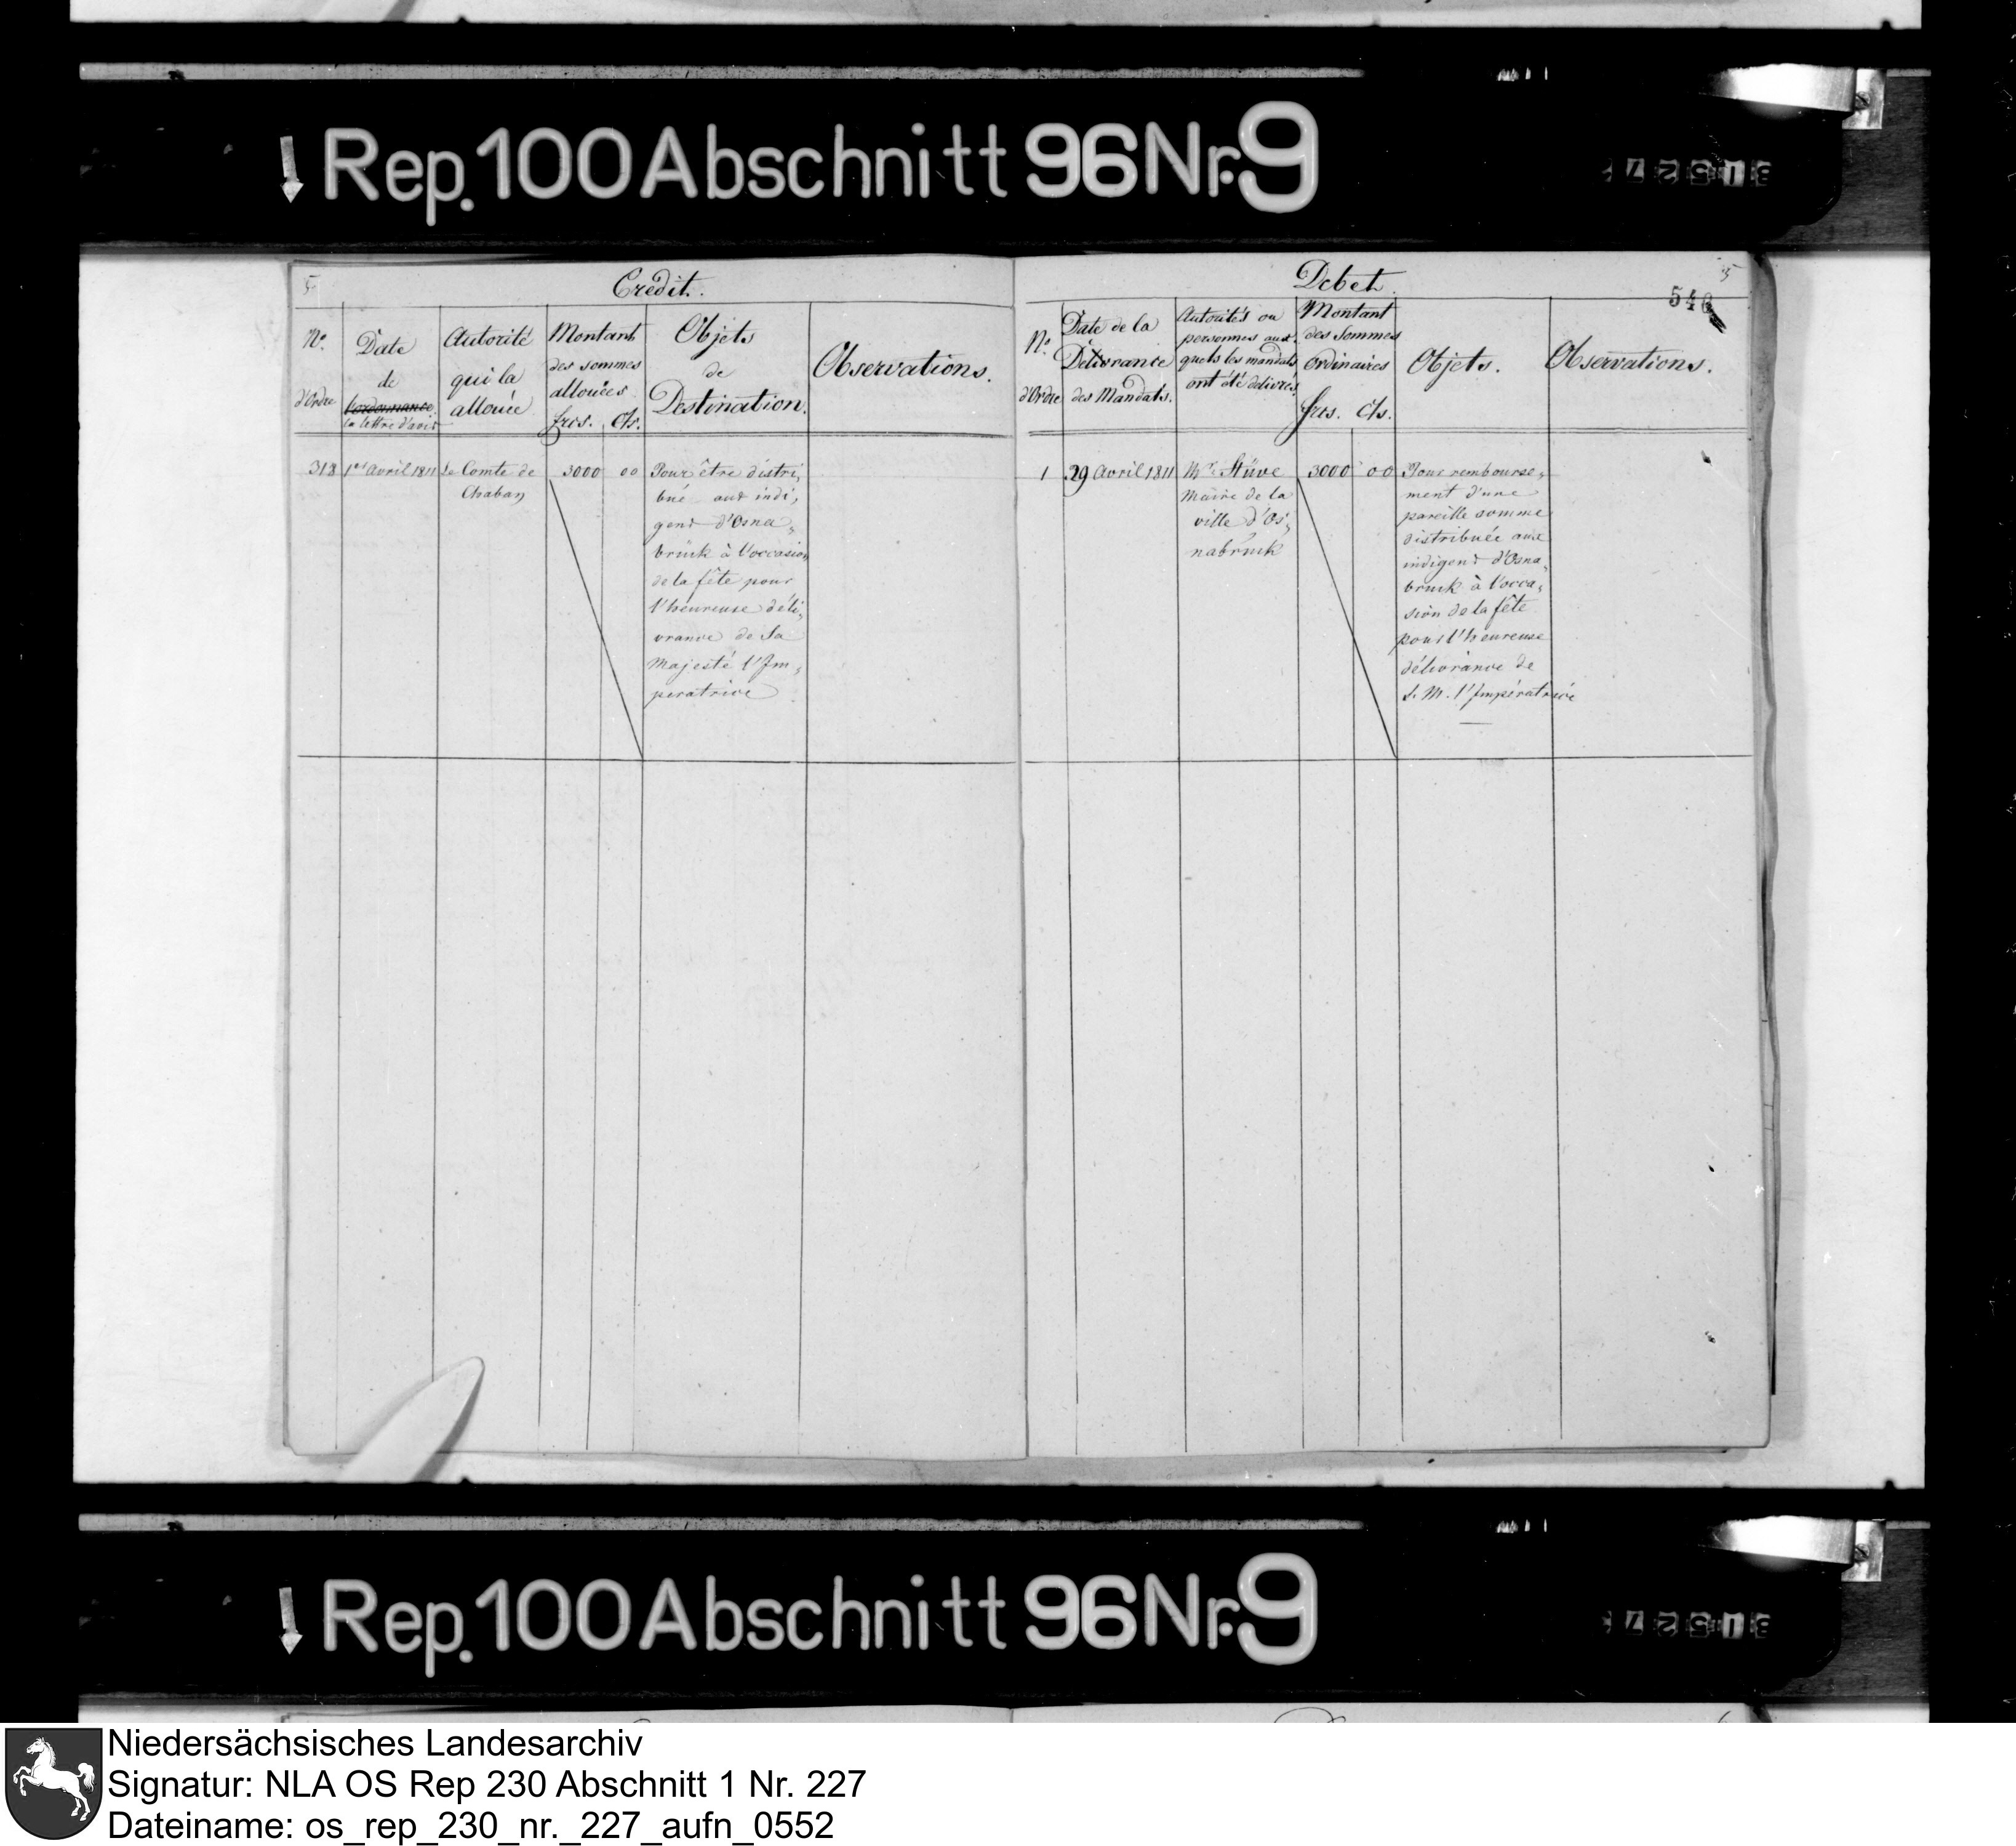 Rep. 100 Abschnitt 96 Nr. 9
31527
5
Credit.
Nº
d'Ordre
Date
de
l'ordonnance
la lettre d'avis
Autorité
qui la
allouée
Montant
des sommes
allouées
frcs. Cts.
Objets
de
Destination.
Observations.
318
1er Avril 1811
Le Comte de
Chaban
3000 00
Pour être distri,
bué aux indi,
gens d'Osna,
brück à l'occasion
de la fête pour
l'heureuse déli,
vrance de Sa
Majesté l'Im,
peratrice
Debet.
5
546
Nº
d'Ordre
Date de la
Délivrance
des Mandats.
Autorités ou
personnes aux,
quels les mandats
ont été delivrés.
Montant
des Sommes
Ordinaires
frcs. Cts.
Objets.
Observations.
1
29 Avril 1811
Mr. Stüve
Maire de la
ville d'Os,
nabrück
3000 00
Pour rembourse,
ment d'une
pareille somme
distribuée aux
indigens d'Osna,
bruck à l'occa,
sion de la fête
pour l'heureuse
délivrance de
S. M. l'Impératrice
Rep. 100 Abschnitt 96 Nr. 9
31527
Niedersächsisches Landesarchiv
Signatur: NLA OS Rep 230 Abschnitt 1 Nr. 227
Dateiname: os_rep_230_nr._227_aufn_0552